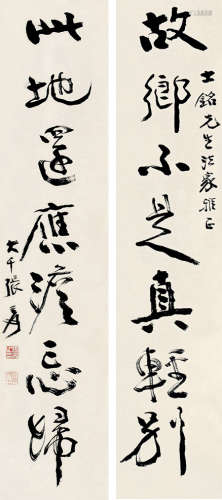 士銘先生法家雅正
故鄉不是真輕別
此地還應澹忘歸
大千張爰